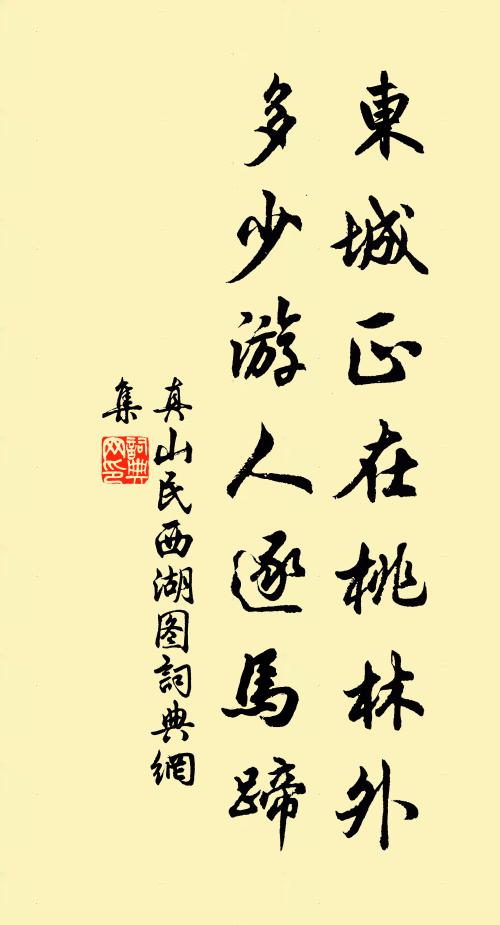 東城正在桃林外
多少游人逐馬蹄
真山民西湖图詞典網
集
詞典网印